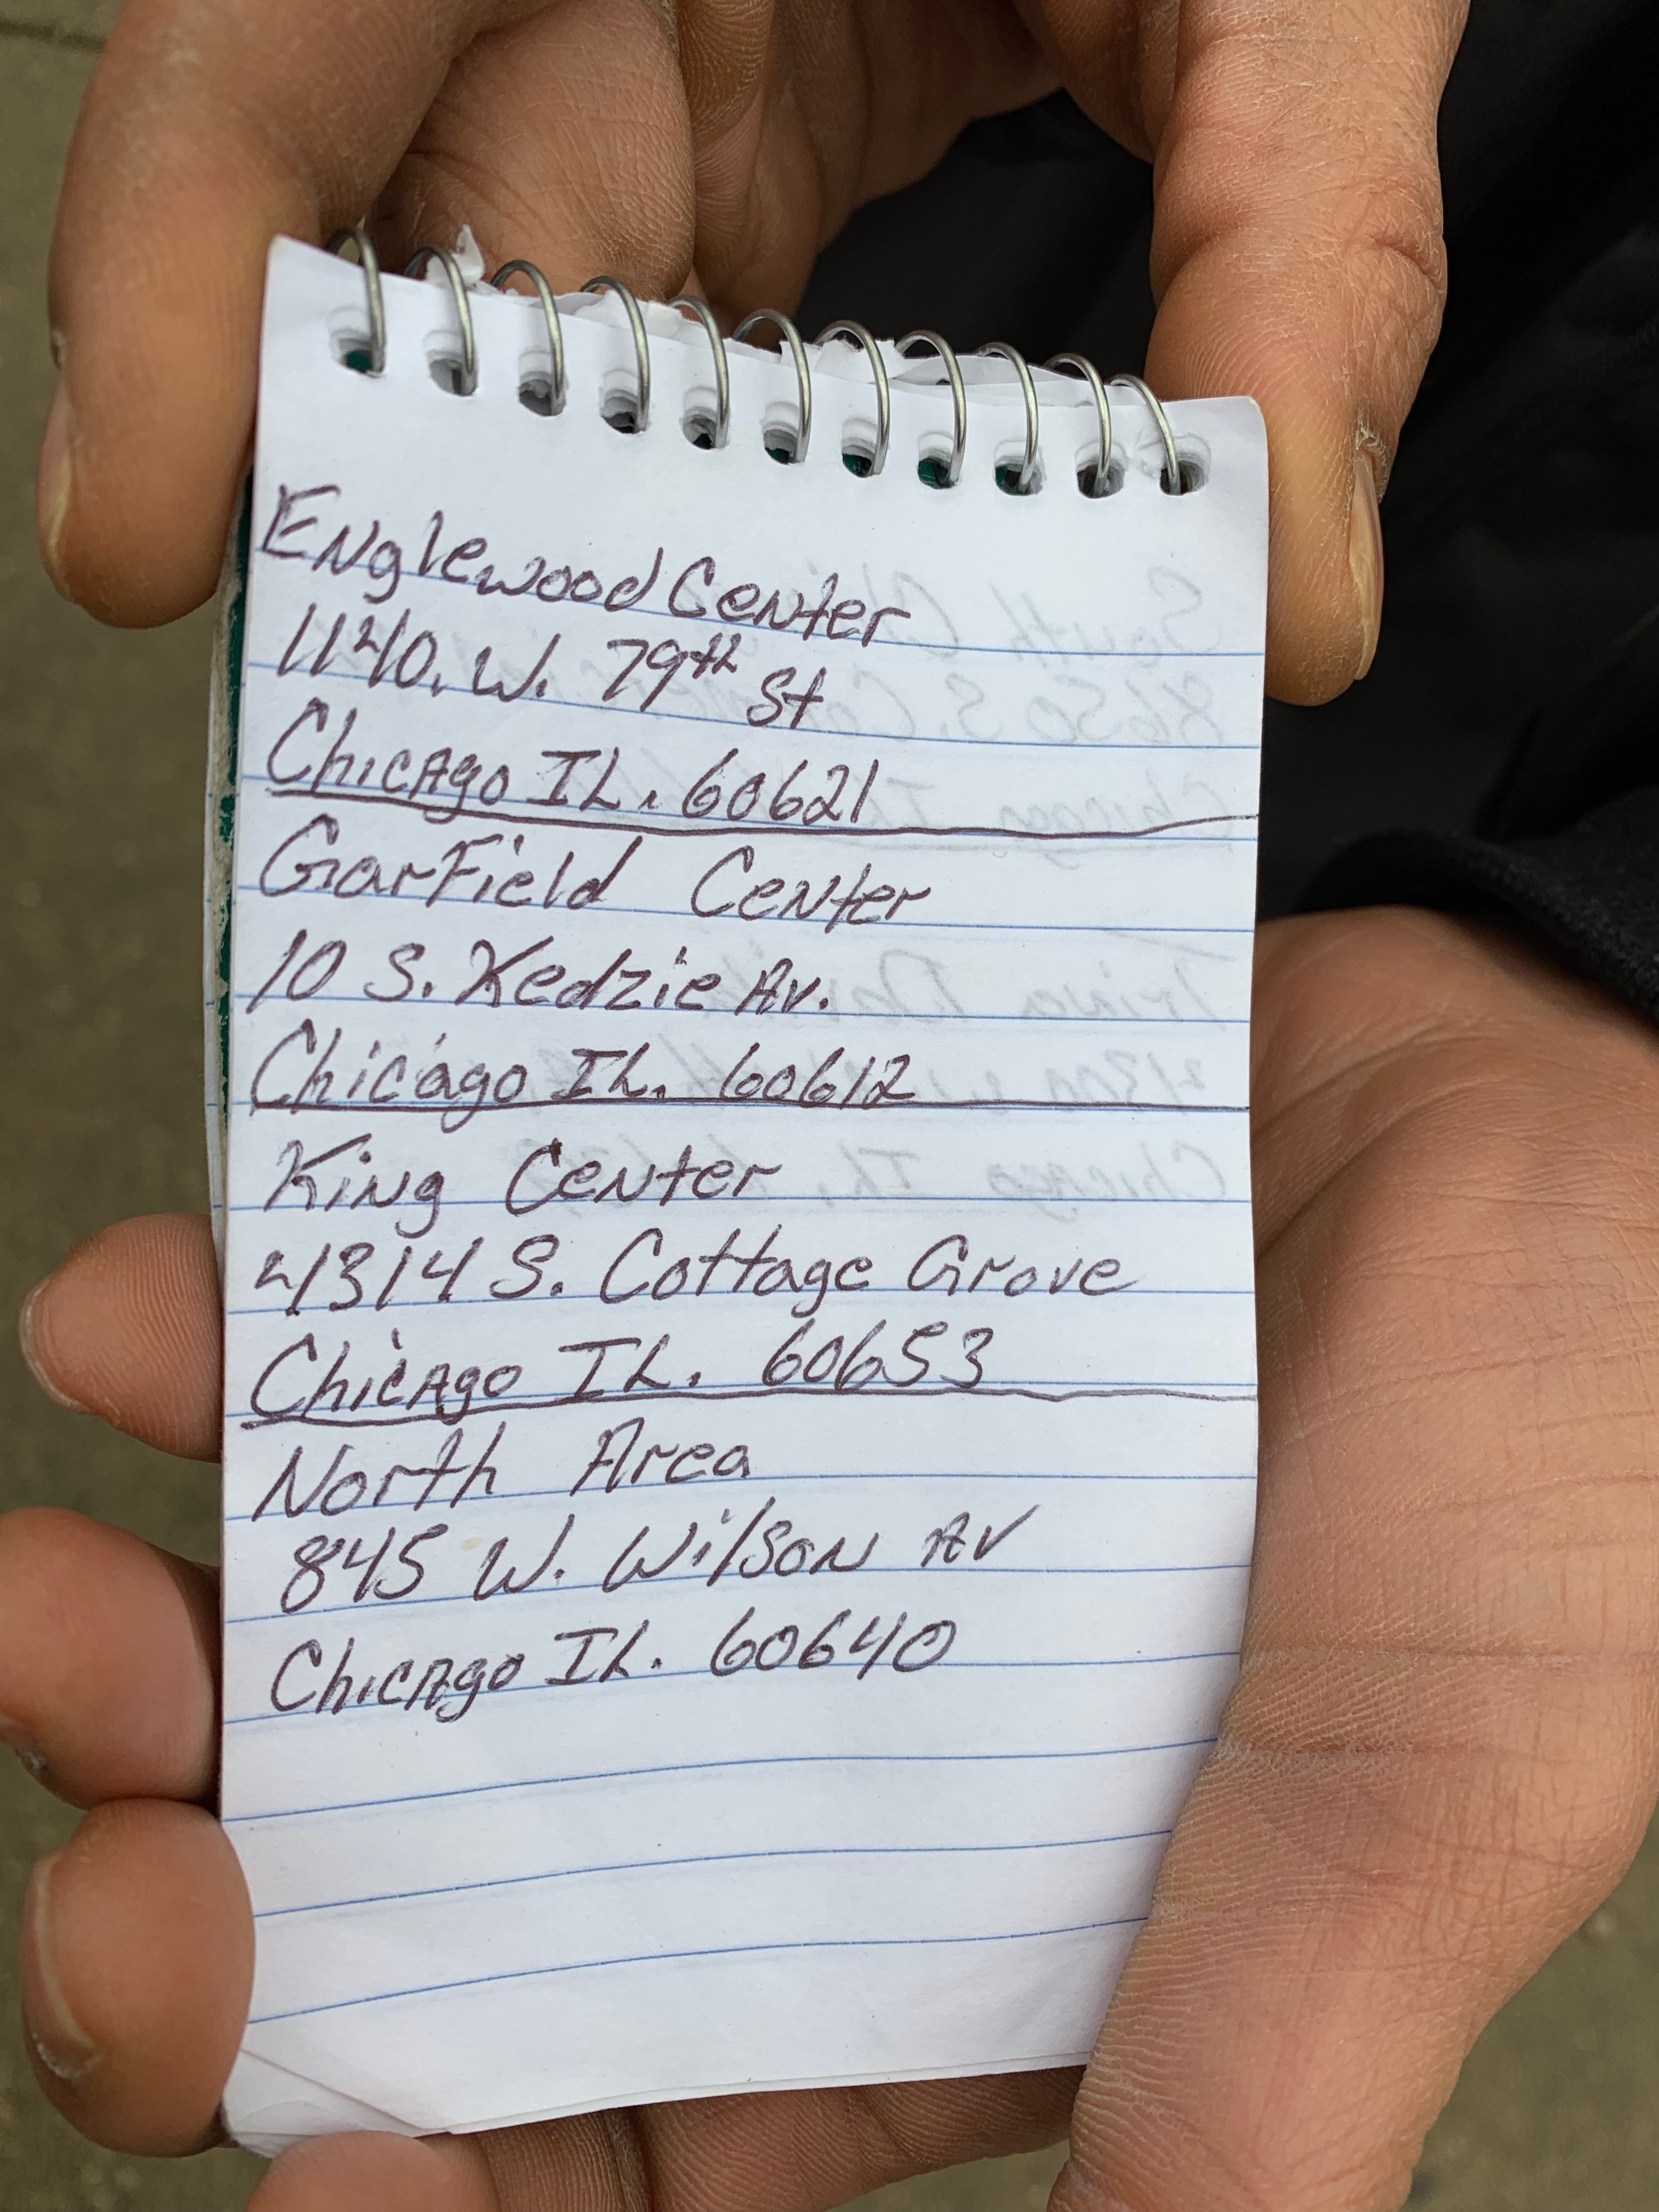 Englewood Center
1140. W. 79th St
Chicago IL. 60621
Garfield Center
10 S. Kedzie Av.
Chicago IL. 60612
King Center
4314 S. Cottage Grove
Chicago IL. 60653
North Area
845 W. Wilson Av
Chicago IL. 60640